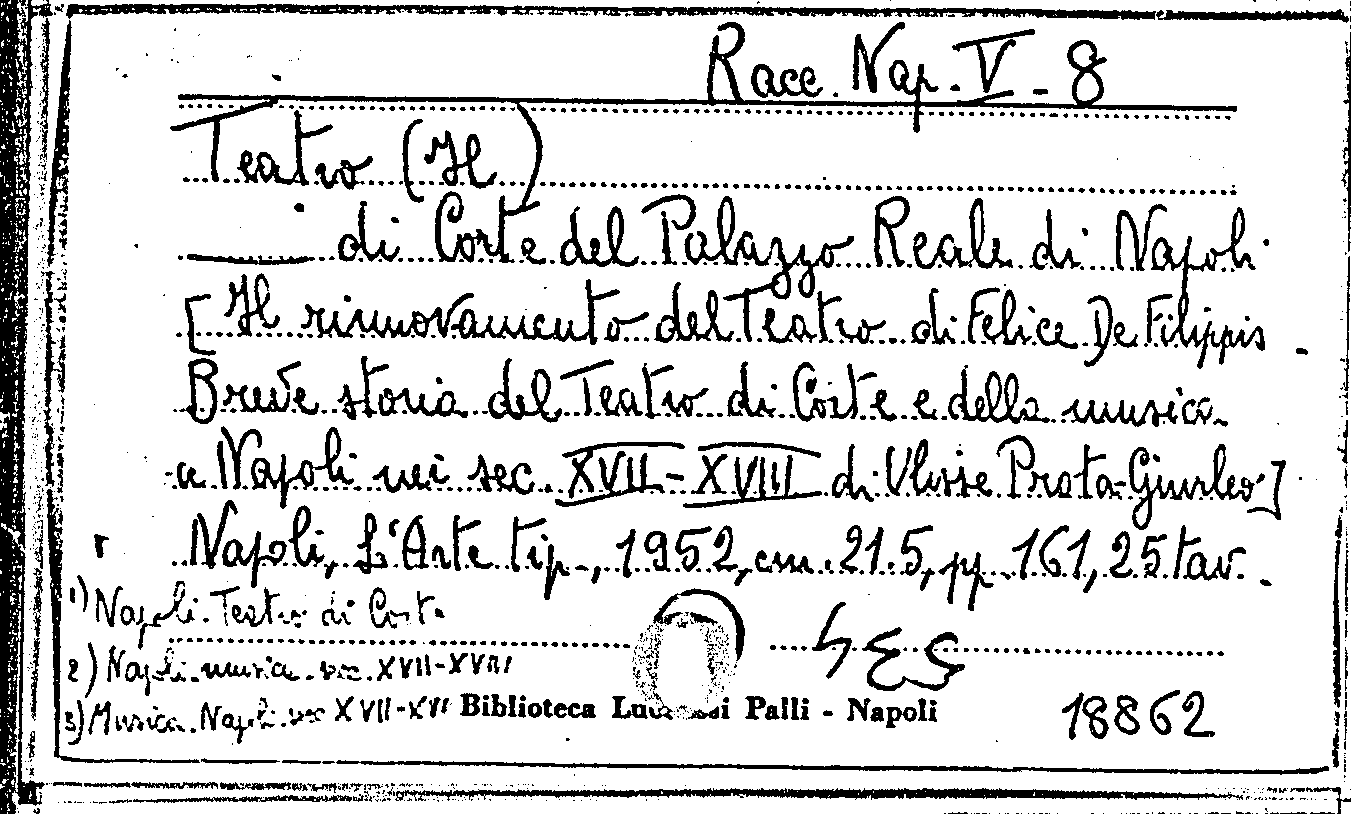 Racc. Nap. V - 8
Teatro (Il)
di Corte del Palazzo Reale di Napoli
[Il rinnovamento del Teatro di Felice De Filippis -
Breve storia del Teatro di Corte e della musica
a Napoli nei sec. XVII-XVIII di Ulisse Prota-Giurleo]
Napoli, L'Arte tip., 1952, cm. 21.5, pp. 161, 25 tav. -
1) Napoli. Teatro di Corte
2) Napoli. musica. sec. XVII-XVIII
3) Musica. Napoli. sec XVII-XVII
Biblioteca Palli - Napoli
18862